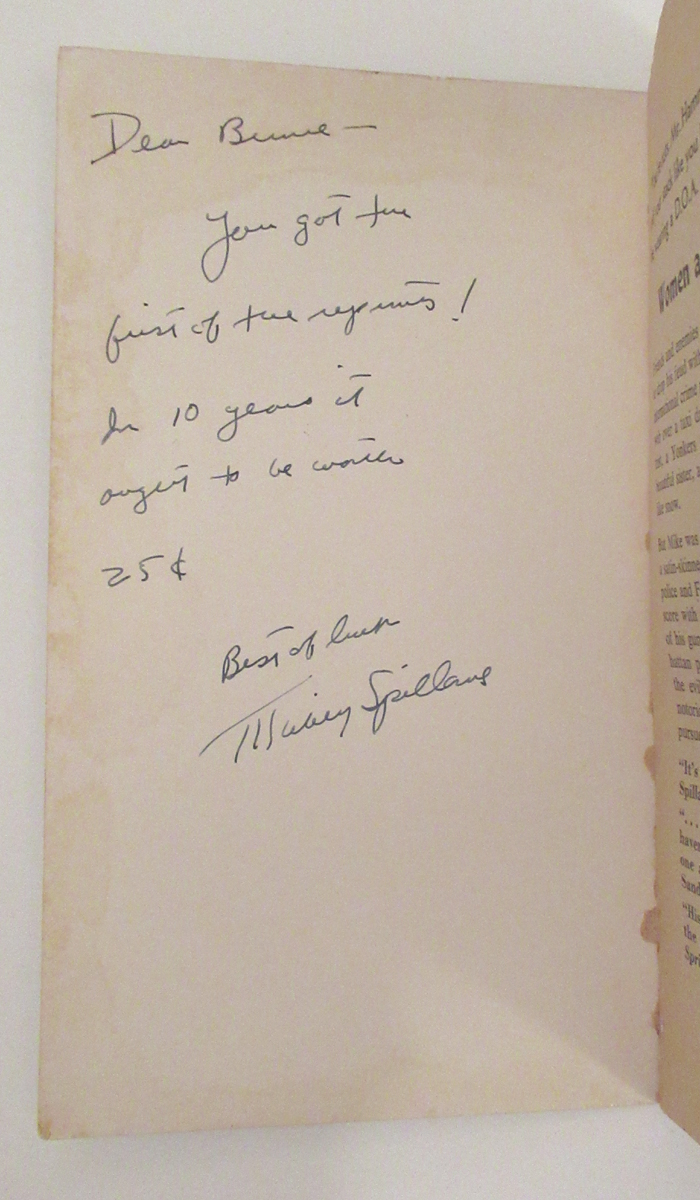 Dear Bennie —
You got the
first of the reprints!
In 10 years it
ought to be worth
25¢
Best of luck
Mickey Spillane
Mr. Hamm
like you
a D.O.A.
Women a
and enemies
his fiend with
international crime
over a taxi d
a Yonkers
beautiful sister, a
like now.
But Mike was
a satin-skinne
police and F
score with
of his gun
hattan p
the evi
notori
pursu
"It's
Spilla
". . .
haven
one
Sand
"His
the
Spri